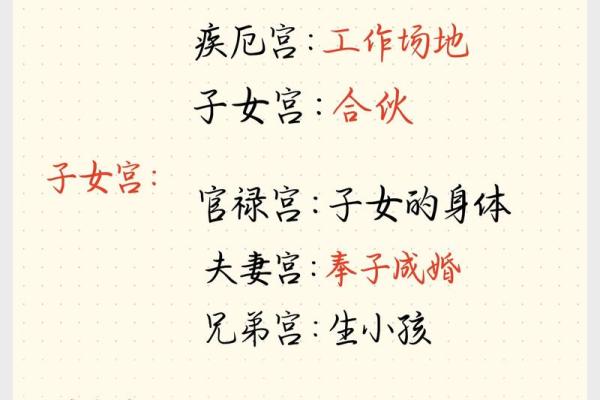 疾厄宫:工作场地
子女宫:合伙
子女宫:
官禄宫:子女的身体
夫妻宫:奉子成婚
兄弟宫:生小孩